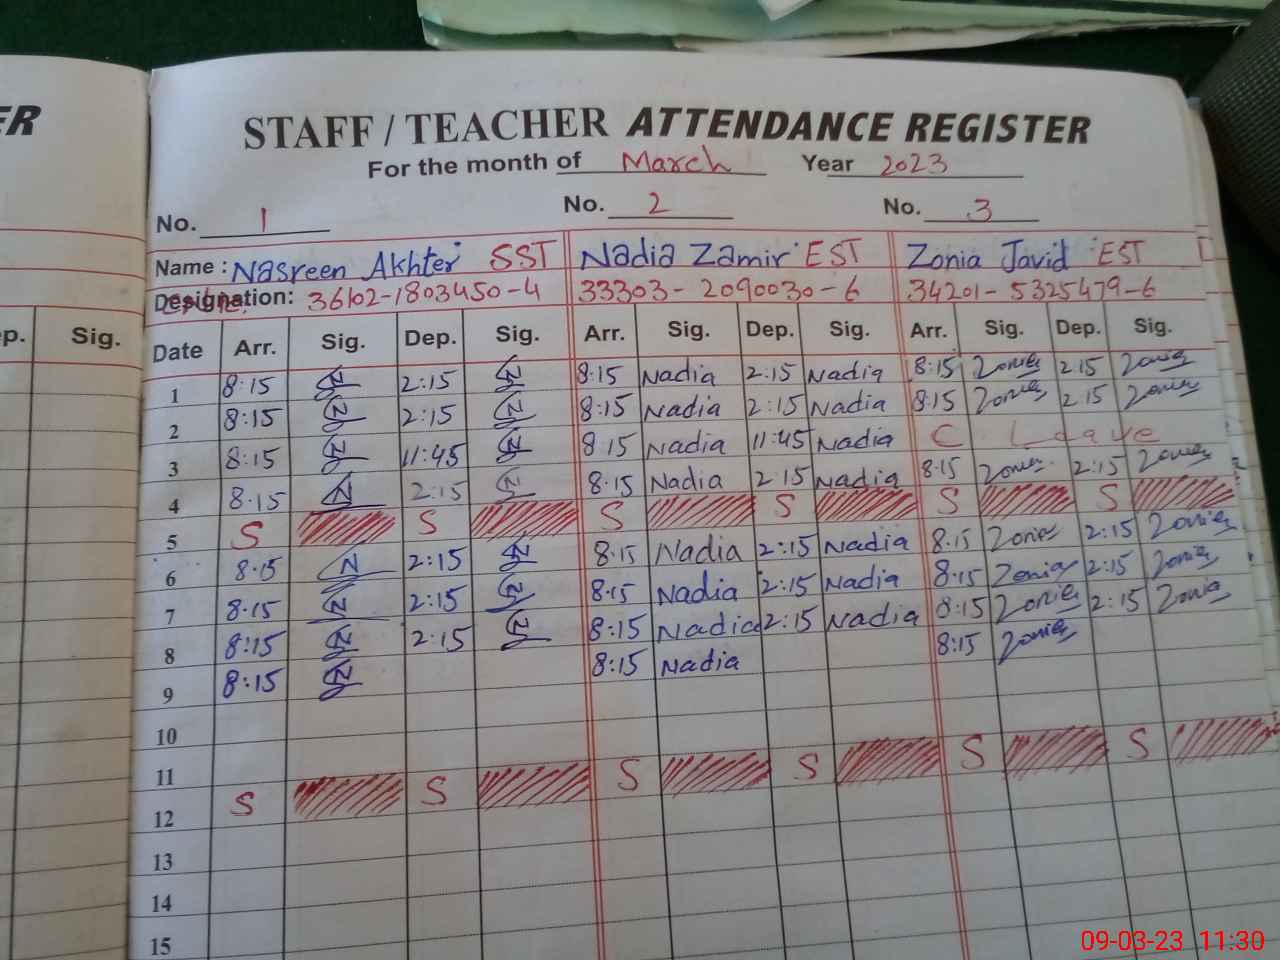 ER
STAFF / TEACHER ATTENDANCE REGISTER
For the month of March Year 2023
No. 1 No. 2 No. 3
Name : Nasreen Akhter SST Nadia Zamir EST Zonia Javid EST
Designation: 36102-1803450-4 33303-2090030-6 34201-5325479-6
p. Sig. Date Arr. Sig. Dep. Sig. Arr. Sig. Dep. Sig. Arr. Sig. Dep. Sig.
1 8:15 2:15 8:15 Nadia 2:15 Nadia 8:15 Zonia 2:15 Zonia
2 8:15 2:15 8:15 Nadia 2:15 Nadia 8:15 Zonia 2:15 Zonia
3 8:15 11:45 8:15 Nadia 11:45 Nadia C Leave
4 8:15 2:15 8:15 Nadia 2:15 Nadia 8:15 Zonia 2:15 Zonia
5 S S S S S S
6 8:15 2:15 8:15 Nadia 2:15 Nadia 8:15 Zonia 2:15 Zonia
7 8:15 2:15 8:15 Nadia 2:15 Nadia 8:15 Zonia 2:15 Zonia
8 8:15 2:15 8:15 Nadia 2:15 Nadia 8:15 Zonia 2:15 Zonia
9 8:15 8:15 Nadia 8:15 Zonia
10
11
12 S S S S S S
13
14
15
09-03-23 11:30